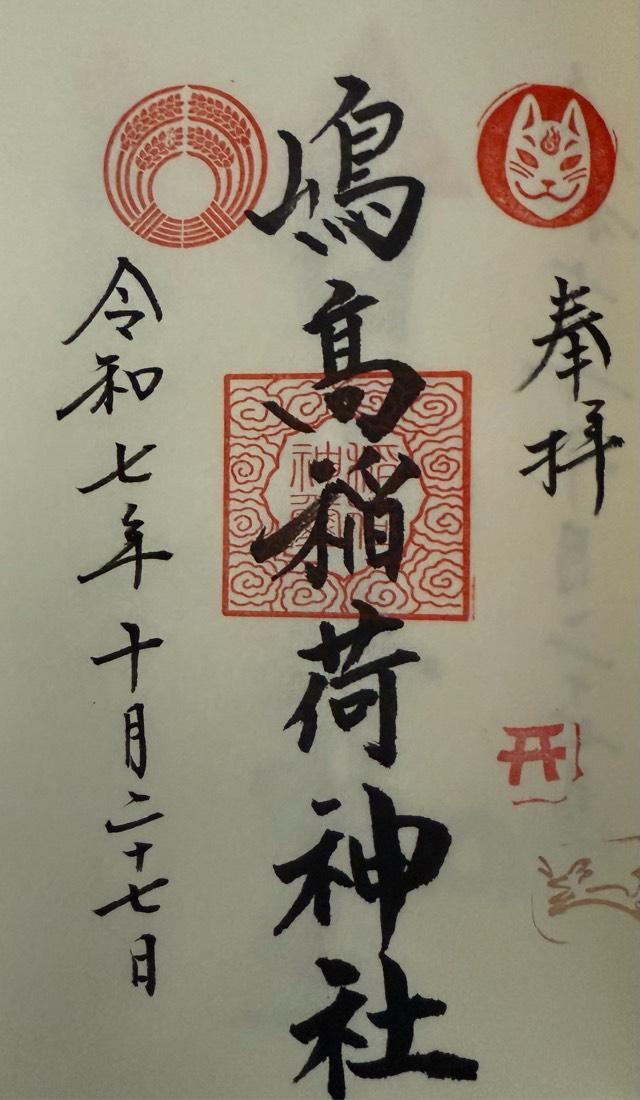 奉拝
嶋髙稲荷神社
令和七年十月二十七日